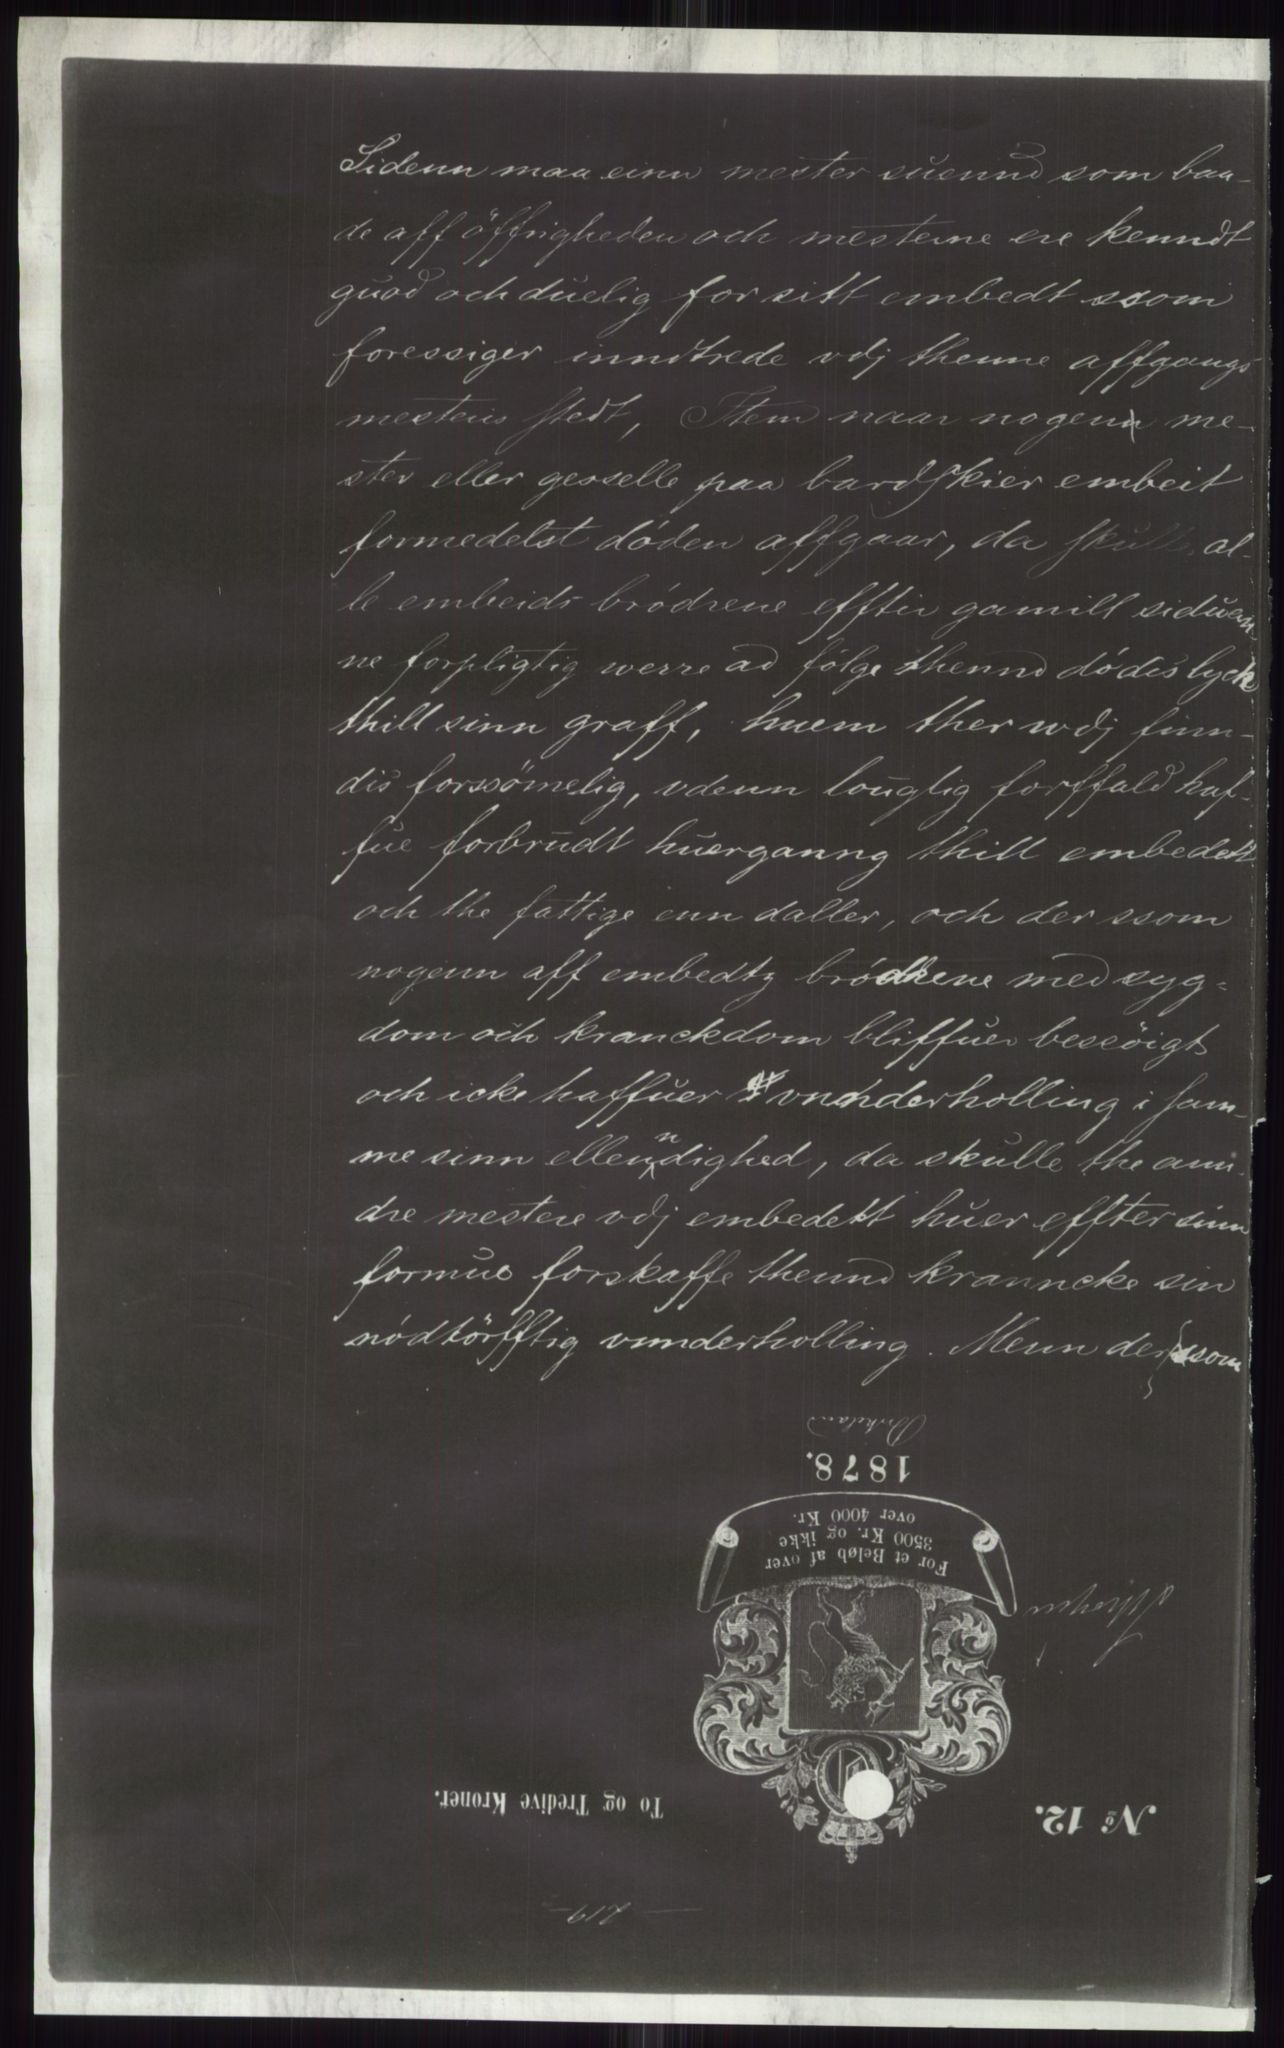 Sidenn maa einn mester suennd som baa-
de aff öffrigheden och mesterne ere kenndt
guod och duelig for sitt embedt ssom
foressiger inndtrede vdj thenne affgangs
mesteris stedt, Item naar nogenn me-
ster eller gesselle paa bardskier embeit
formedelst døden affgaar, da skulle al-
le embeids brödrene effter gamill siduan-
ne forpligtig werre ad følge thennd dødis lyck
thill sinn graff, huem ther wdj finn-
dis forssömelig, vdenn louglig forffald haf-
fue forbrudt huerganng thill embedett
och the fattige enn daller, och der ssom
nogenn aff embedtz brödrene med syg-
dom och kranckdom bliffuer bessöigt
och icke haffuer vnnderholling i sam-
me sinn ellenndighed, da skulle the ann-
dre mestere vdj embedett huer effter sinn
formue forskaffe thennd kranncke sin
nödtörfftig vnnderholling. Menn der ssom
1878.
For et Beløb af over
3500 Kr. og ikke
over 4000 Kr.
To og Tredive Kroner.
No 12.
— 219 —